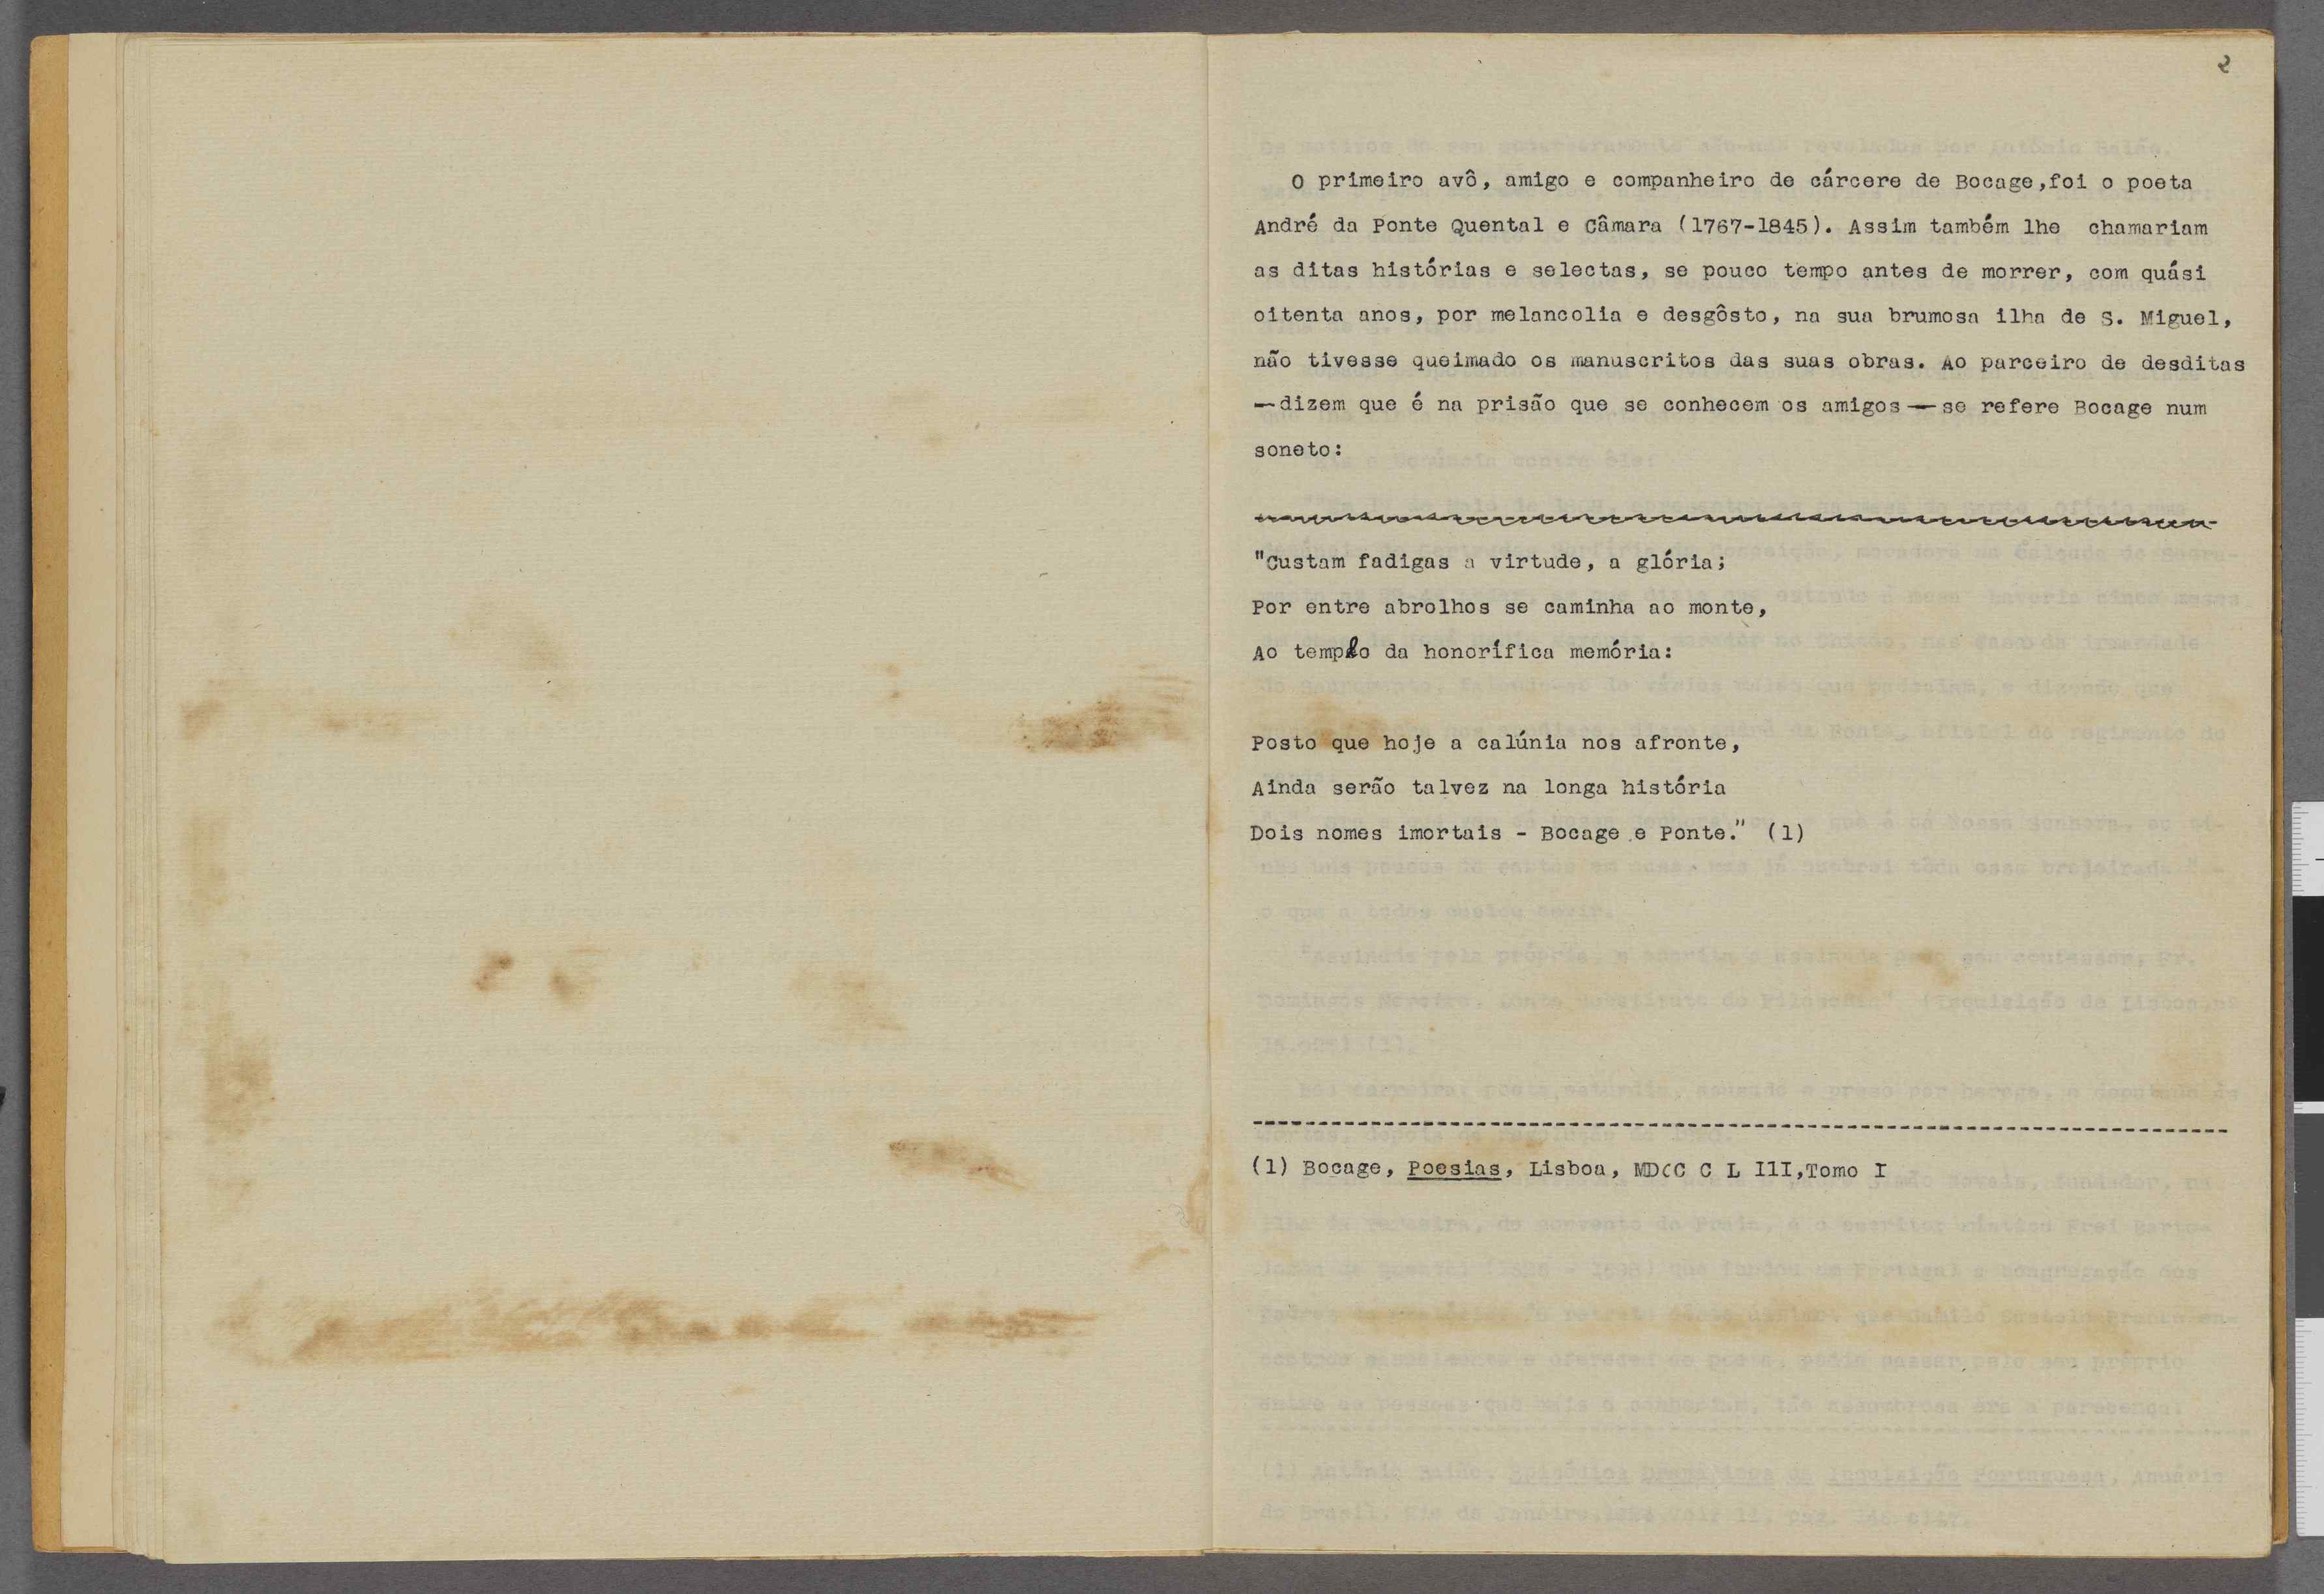 2
O primeiro avô, amigo e companheiro de cárcere de Bocage,foi o poeta
André da Ponte Quental e Câmara (1767-1845). Assim também lhe chamariam
as ditas histórias e selectas, se pouco tempo antes de morrer, com quási
oitenta anos, por melancolia e desgôsto, na sua brumosa ilha de S. Miguel,
não tivesse queimado os manuscritos das suas obras. Ao parceiro de desditas
—dizem que é na prisão que se conhecem os amigos—se refere Bocage num
soneto:
"Custam fadigas a virtude, a glória;
Por entre abrolhos se caminha ao monte,
Ao templo da honorífica memória:
Posto que hoje a calúnia nos afronte,
Ainda serão talvez na longa história
Dois nomes imortais - Bocage e Ponte." (1)
(1) Bocage, Poesias, Lisboa, MDCC C L IlI,Tomo I